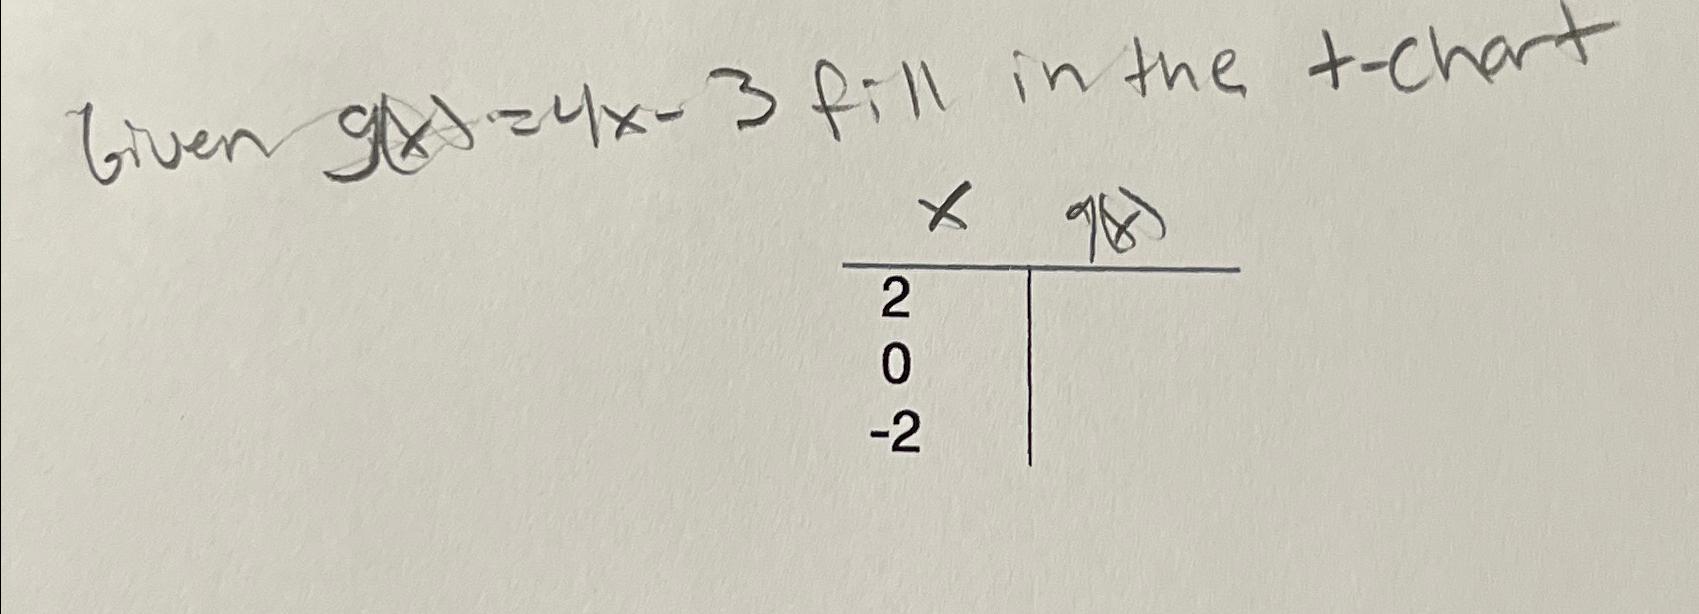 Given g(x)=4x-3 fill in the t-chart
x g(x)
2
0
-2